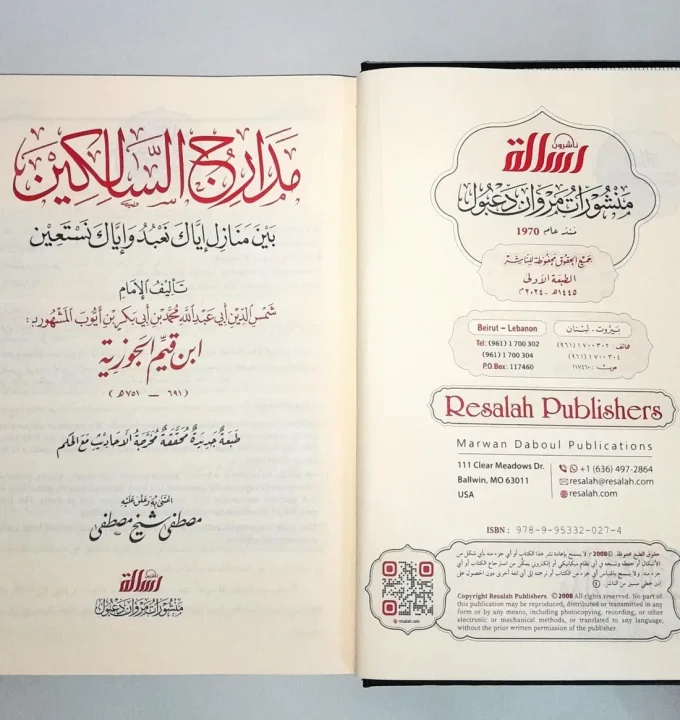 مَدَارِجُ السَّالِكِين
بَيْنَ مَنَازِلِ إِيَّاكَ نَعْبُدُ وَإِيَّاكَ نَسْتَعِين
تَأليفُ الإمَامِ
شَمْسِ الدِّينِ أَبي عَبْدِ اللَّه مُحَمَّد بْنِ أَبي بَكْرِ بْنِ أَيُّوبَ المَشْهُورِ بـ :
ابن قَيِّم الجَوْزِيَّة
( ٦٩١ – ٧٥١ هـ )
طَبعَةٌ جَدِيدَةٌ مُحَقَّقَةٌ مُخَرَّجَةُ الأَحَادِيثِ مَعَ الحُكم
اعْتَنَى بِهِ وَعَلَّقَ عَلَيْه
مصطفى شيخ مصطفى
ناشرون
رسالة
منشورات مروان دعبول
ناشرون
رسالة
منشورات مروان دعبول
منذ عام 1970
جميع الحقوق محفوظة للناشر
الطبعة الأولى
١٤٤٥هـ - ٢٠٢٤م
Beirut – Lebanon
Tel: (961) 1 700 302
(961) 1 700 304
P.O.Box: 117460
بيروت - لبنان
هاتف: ٧٠٠٣٠٢ ١ (٩٦١)
٧٠٠٣٠٤ ١ (٩٦١)
ص.ب: ١١٧٤٦٠
Resalah Publishers
Marwan Daboul Publications
111 Clear Meadows Dr.
Ballwin, MO 63011
USA
+1 (636) 497-2864
resalah@resalah.com
resalah.com
ISBN: 978-9-95332-027-4
حقوق الطبع محفوظة. ©2008م لا يسمح بإعادة نشر هذا الكتاب أو أي جزء منه بأي شكل من
الأشكال أو حفظه ونسخه في أي نظام ميكانيكي أو إلكتروني يمكّن من استرجاع الكتاب أو أي
جزء منه. ولا يسمح باقتباس أي جزء من الكتاب أو ترجمته إلى أي لغة أخرى دون الحصول على
إذن خطي مسبق من الناشر.
resalah.com
Copyright Resalah Publishers ©2008 All rights reserved. No part of
this publication may be reproduced, distributed or transmitted in any
form or by any means, including photocopying, recording, or other
electronic or mechanical methods, or translated to any language,
without the prior written permission of the publisher.